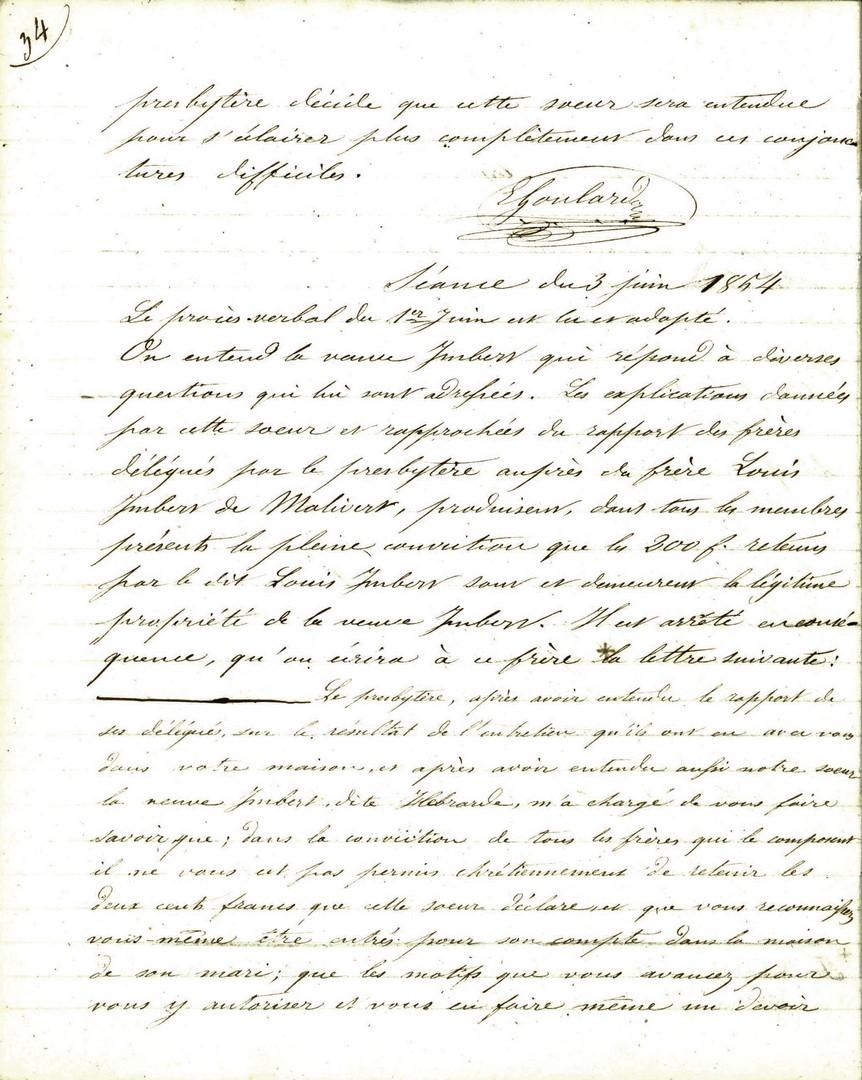 34
presbytère décide que cette soeur sera entendue
pour s'éclairer plus complètement dans ces conjonc-
tures difficiles.
EGoulard
Séance du 3 juin 1854
Le procès verbal du 1er Juin est lu et adopté.
On entend la veuve Imbert qui répond à diverses
questions qui lui sont adressées. Les explications données
par cette soeur et rapprochées du rapport des frères
délégués par le presbytère auprès du frère Louis
Imbert de Malivert, produisent, dans tous les membres
présents la pleine conviction que les 200 f. retenus
par le dit Louis Imbert sont et demeurent la légitime
propriété de la veuve Imbert. Il est arrêté en consé-
quence, qu'on écrira à ce frère la lettre suivante:
Le presbytère, après avoir entendu le rapport de
ses délégués, sur le résultat de l'entretien qu'ils ont eu avec vous
dans votre maison, et après avoir entendu aussi notre soeur
la veuve Imbert, dite Hébrarde, m'a chargé de vous faire
savoir que; dans la conviction de tous les frères qui le composent
il ne vous est pas permis chrétiennement de retenir les
deux cents francs que cette soeur déclare, et que vous reconnaissez
vous-même être entrés pour son compte dans la maison
de son mari; que les motifs que vous avancez pour
vous y autoriser et vous en faire même un devoir